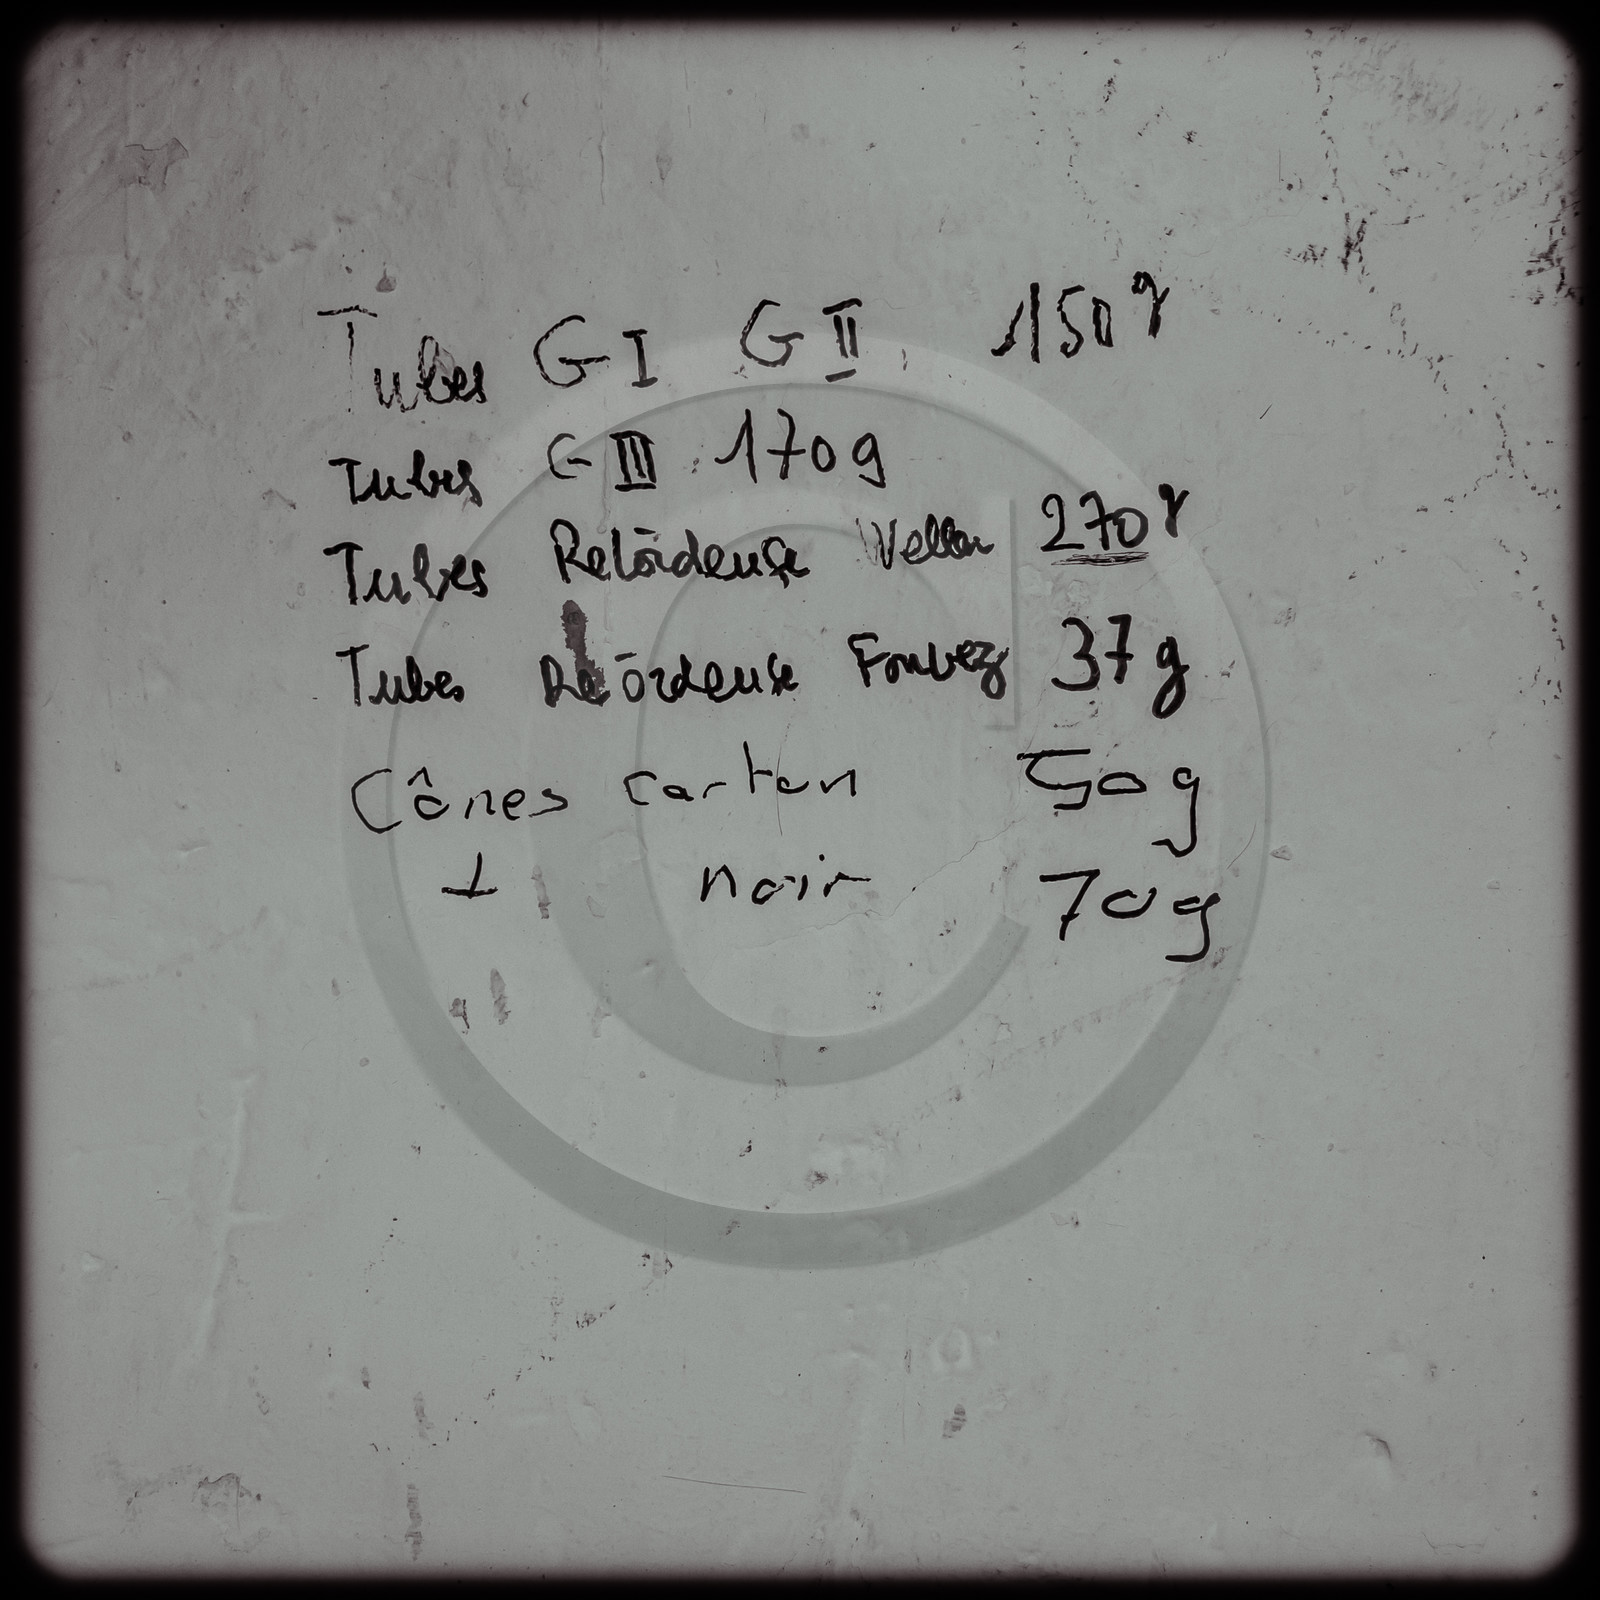 Tubes G I G II 150g
Tubes G III 170g
Tubes Retordeuse 270g
Tubes Retordeuse 37g
Cônes carton 50g
noir 70g